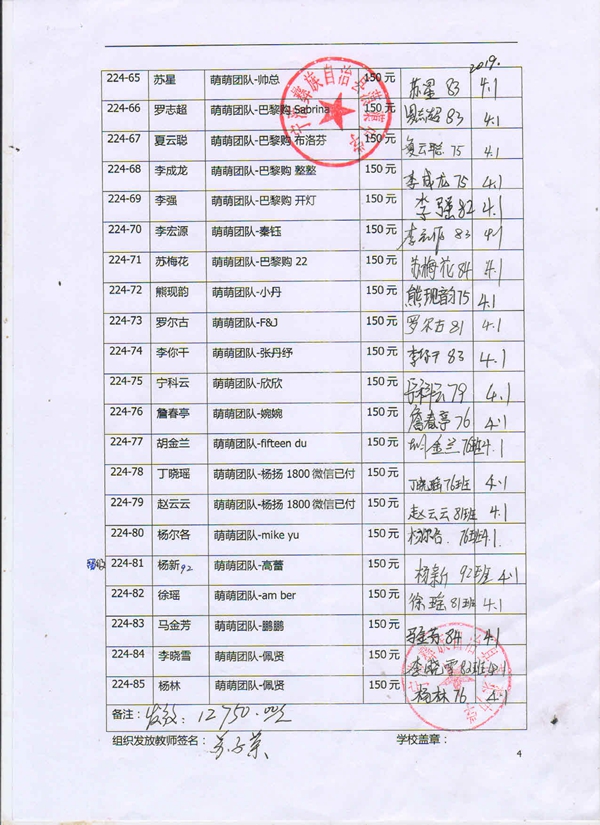 2019.
224-65 苏星 萌萌团队-帅总 150元 苏星 83 4.1
224-66 罗志超 萌萌团队-巴黎购 Sabrina 150元 罗志超 83 4.1
224-67 夏云聪 萌萌团队-巴黎购 布洛芬 150元 夏云聪 75 4.1
224-68 李成龙 萌萌团队-巴黎购 整整 150元 李成龙 75 4.1
224-69 李强 萌萌团队-巴黎购 开灯 150元 李强 82 4.1
224-70 李宏源 萌萌团队-秦钰 150元 李宏源 83 4.1
224-71 苏梅花 萌萌团队-巴黎购 22 150元 苏梅花 84 4.1
224-72 熊现韵 萌萌团队-小丹 150元 熊现韵 75 4.1
224-73 罗尔古 萌萌团队-F&J 150元 罗尔古 81 4.1
224-74 李你干 萌萌团队-张丹纾 150元 李你干 83 4.1
224-75 宁科云 萌萌团队-欣欣 150元 宁科云 79 4.1
224-76 詹春亭 萌萌团队-婉婉 150元 詹春亭 76 4.1
224-77 胡金兰 萌萌团队-fifteen du 150元 胡金兰 76班 4.1
224-78 丁晓瑶 萌萌团队-杨扬 1800 微信已付 150元 丁晓瑶 76班 4.1
224-79 赵云云 萌萌团队-杨扬 1800 微信已付 150元 赵云云 81班 4.1
224-80 杨尔各 萌萌团队-mike yu 150元 杨尔各. 76班 4.1
224-81 杨新 92 萌萌团队-高蕾 150元 杨新 92班 4.1
224-82 徐瑶 萌萌团队-am ber 150元 徐瑶 81班 4.1
224-83 马金芳 萌萌团队-鹏鹏 150元 马金芳 84 4.1
224-84 李晓雪 萌萌团队-佩贤 150元 李晓雪 82班 4.1
224-85 杨林 萌萌团队-佩贤 150元 杨林 76 4.1
备注: 发放: 12750.00元
组织发放教师签名: 学校盖章:
4